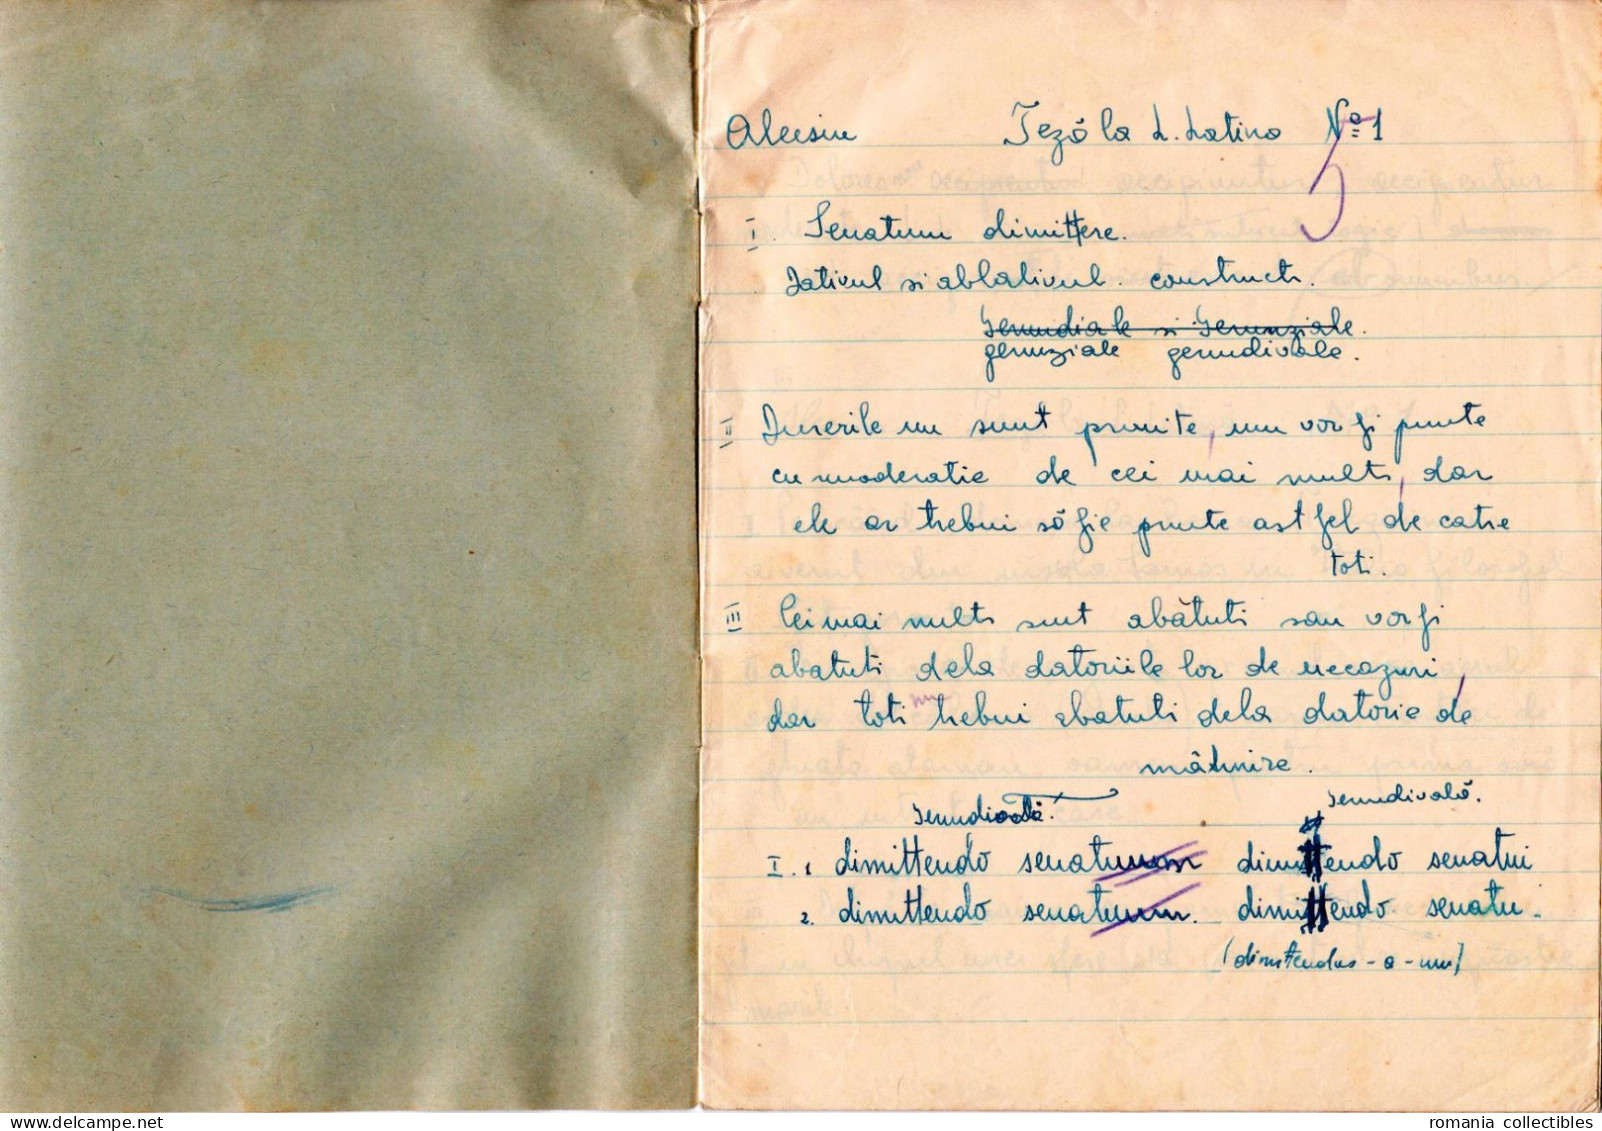 Teză la L. Latina Nº 1
I. Senatum dimittere.
Dativul si ablativul constructi.
Gerundiale si Gerunziale.
gerunziale gerundivale.
II Durerile nu sunt primite, nu vor fi purtate
cu moderatie de cei mai multi, dar
ele ar trebui să fie purtate astfel de catre
toti.
III Cei mai multi sunt abătuti sau vor fi
abatuti dela datoriile lor de necazuri,
dar toti nu trebui abatuti dela datorie de
mâhnire.
gerundivală.
I. 1 dimittendo senatum dimittendo senatui
2. dimittendo senatum. dimittendo senatu.
(dimittendus-a-um)
romania collectibles